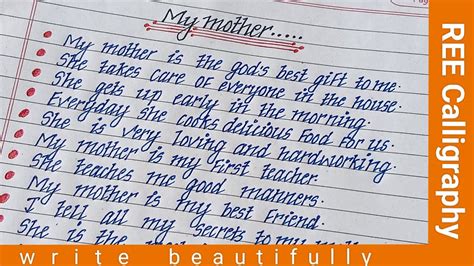 My mother.....
My mother is the god's best gift to me.
She takes care of everyone in the house.
She gets up early in the morning.
Everyday she cooks delicious food for us.
She is very loving and hardworking.
My mother is my first teacher.
She teaches me good manners.
My mother is my best friend.
I tell all my secrets to my
She is the
REE Calligraphy
write beautifully